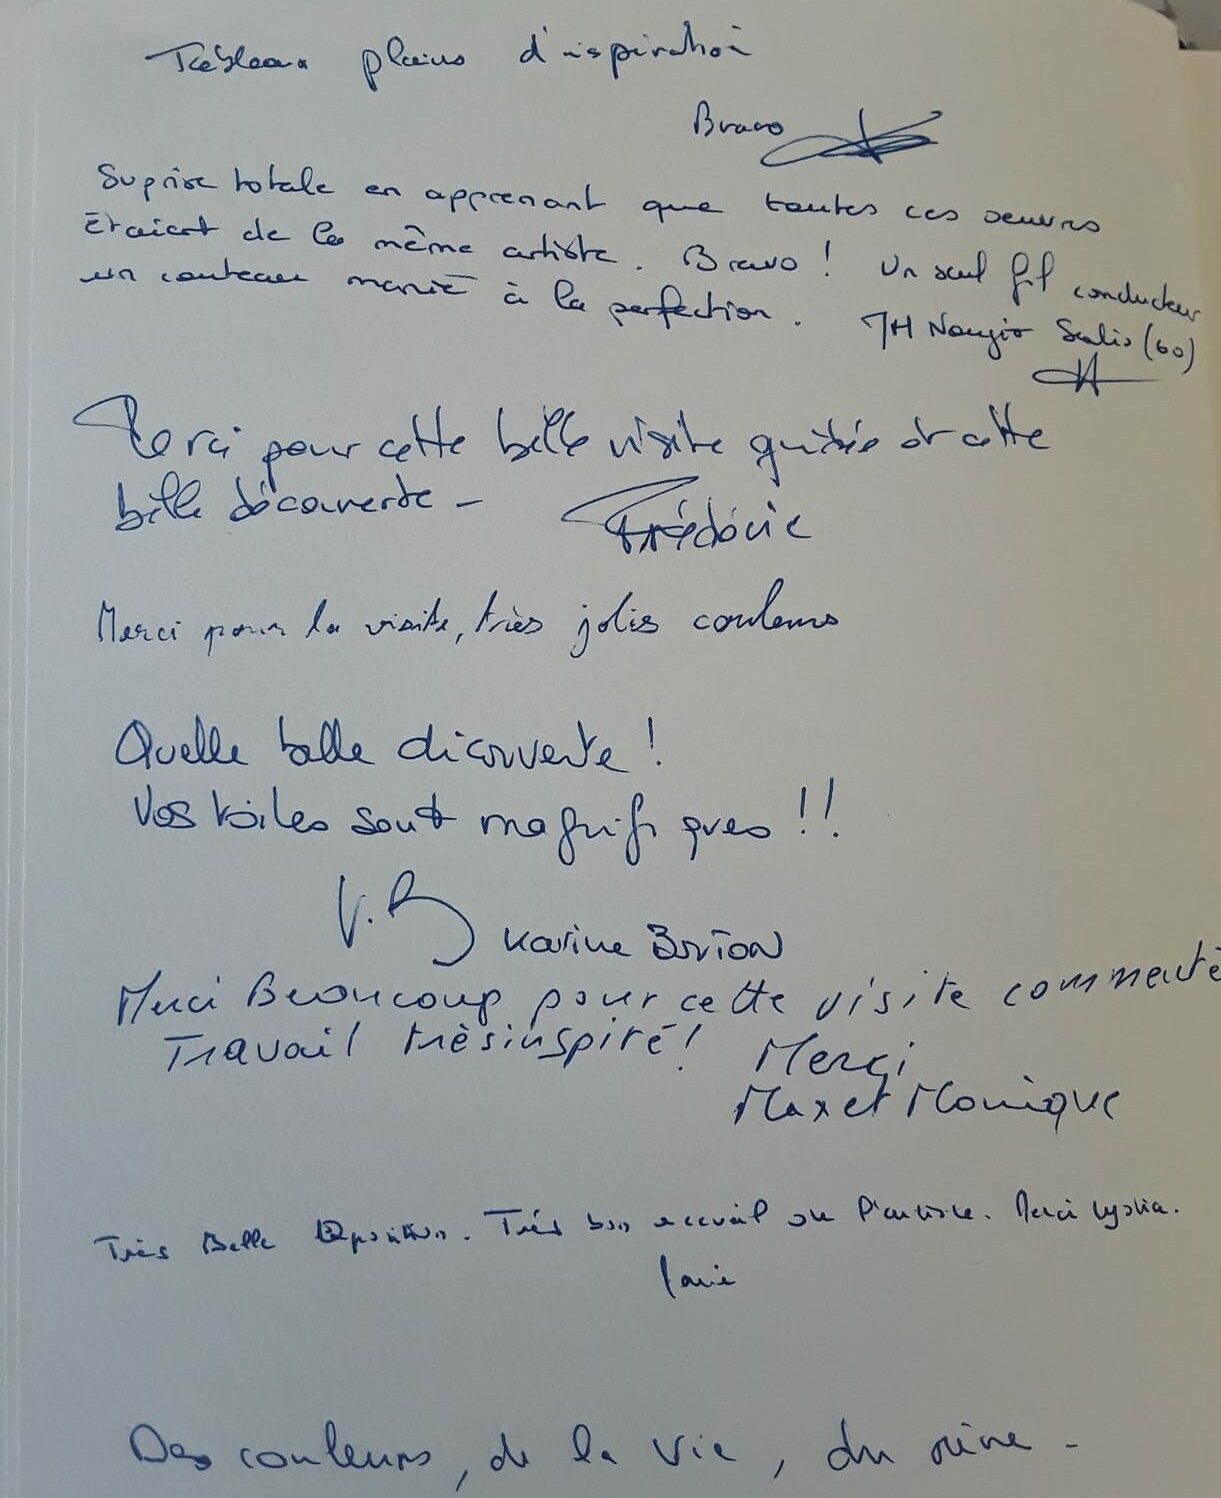 Tableaux pleins d'inspiration
Bravo
Suprise totale en apprenant que toutes ces oeuvres
étaient de la même artiste. Bravo ! Un seul fil conducteur
un couteau manié à la perfection. JH
(60)
Merci pour cette belle visite guidée et cette
belle découverte -
Frédéric
Merci pour la visite, très jolis couleurs
Quelle belle découverte !
Vos toiles sont magnifiques !!
V.B
Karine
Merci Beaucoup pour cette visite commenté
Travail très inspiré ! Merci
Max et Monique
Très Belle Exposition. Très bon accueil de l'artiste. Merci
Des couleurs, de la vie, du rêve -